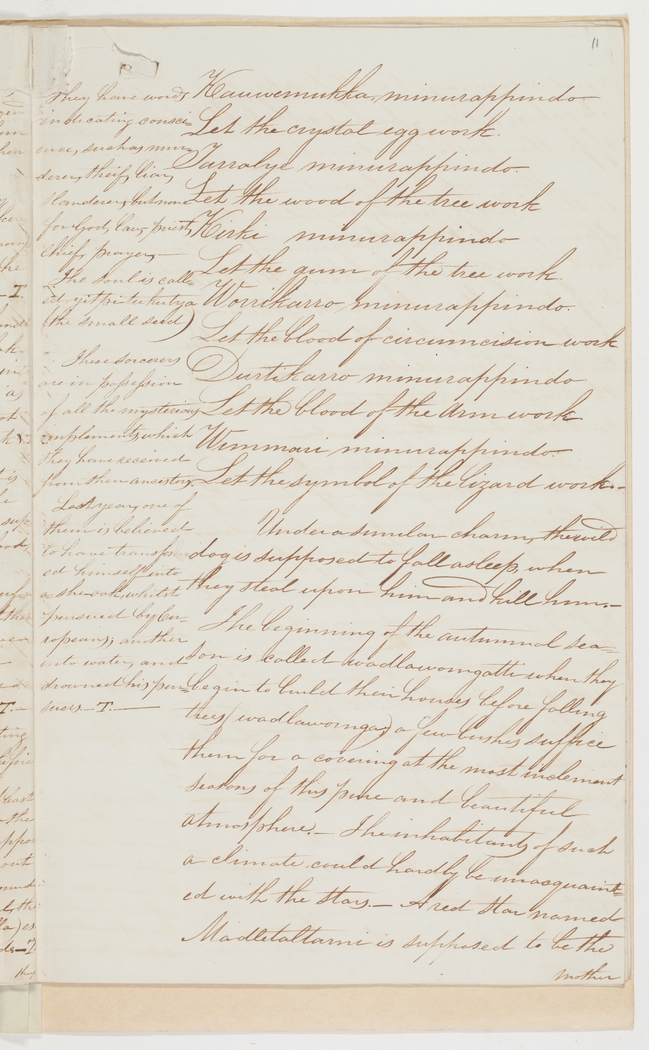 11
They have words
indicating consci-
ence, such as mur-
derer, theif, liar,
slanderer, but none
for God, law, priest,
chief, prayer.—
The soul is call-
ed yitpi tukutya
(the small seed)
These sorcerers
are in possession
of all the mysterious
implements, which
they have received
from their ancestors.
Last year, one of
them is believed
to have transfor-
ed himself into
a she-oak, whilst
persued by Eu-
ropeans; another
into water, and
drowned his pur-
suers.—T.—
Kauwemukka, minurappindo
Let the crystal egg work.
Tarralye minurappindo.
Let the wood of the tree work
Kirki minurappindo
Let the gum of the tree work
Worrikarro minurappindo.
Let the blood of circumcision work
Durtikarro minurappindo
Let the blood of the Arm work
Wimmari minurappindo.
Let the symbol of the lizard work.—
Under a similar charm, the wild
dog is supposed to fall asleep, when
they steal upon him and kill him.—
The beginning of the autumnal sea-
son is called wadlaworngatti when they
begin to build their houses before falling
trees (wadlaworngar) a few bushes suffice
them for a covering at the most inclement
seasons of this pure and beautiful
atmosphere.— The inhabitants of such
a climate could hardly be unacquaint-
ed with the stars.— A red star named
Madletaltarni is supposed to be the
mother